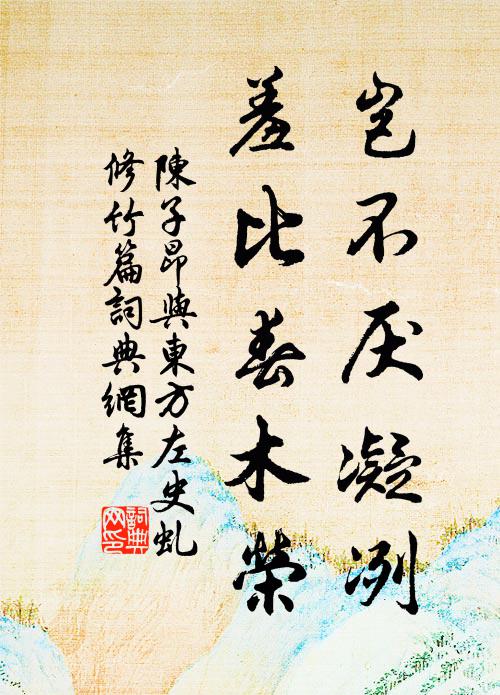 豈不厌凝冽
羞比春木榮
陳子昂與東方左史虬
修竹篇詞典網集
詞典网印